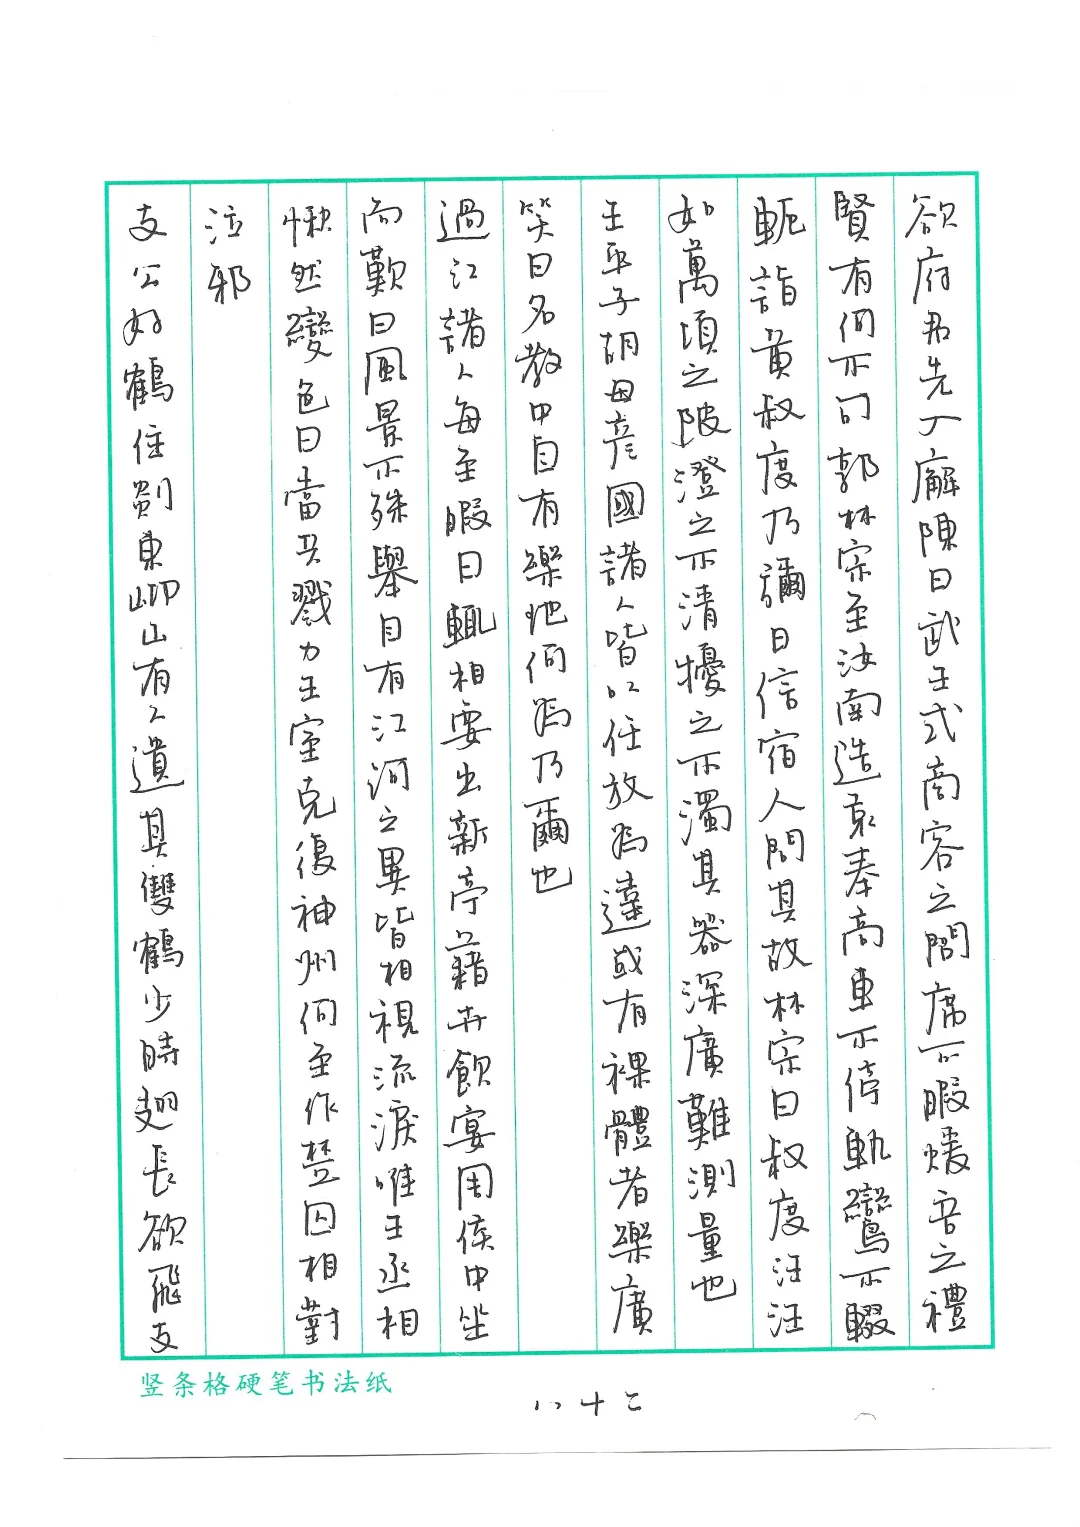 欲府君先入廨陳曰武王式商容之閭席不暇煖吾之禮
賢有何不可郭林宗至汝南造袁奉高車不停軌鸞不輟
軛詣黃叔度乃彌日信宿人問其故林宗曰叔度汪汪
如萬頃之陂澄之不清擾之不濁其器深廣難測量也
王平子胡毋彥國諸人皆以任放為達或有裸體者樂廣
笑曰名教中自有樂地何為乃爾也
過江諸人每至暇日輒相要出新亭藉卉飲宴周侯中坐
而歎曰風景不殊舉目有江河之異皆相視流淚唯王丞相
愀然變色曰當共戮力王室克復神州何至作楚囚相對
泣邪
支公好鶴住剡東岇山有人遺其雙鶴少時翅長欲飛支
竖条格硬笔书法纸